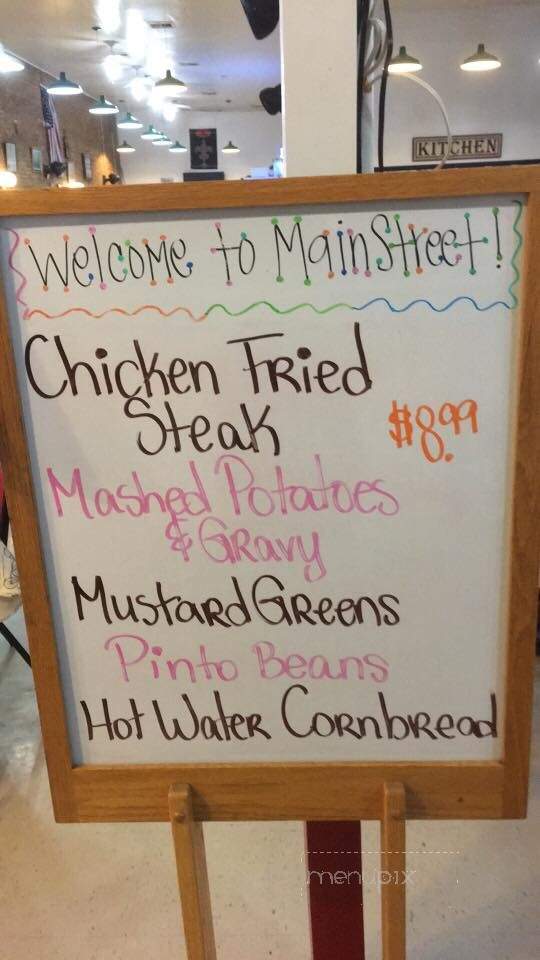 KITCHEN
Welcome to MainStreet!
Chicken Fried
Steak
$8.99
Mashed Potatoes
& Gravy
Mustard Greens
Pinto Beans
Hot Water Cornbread
menupix